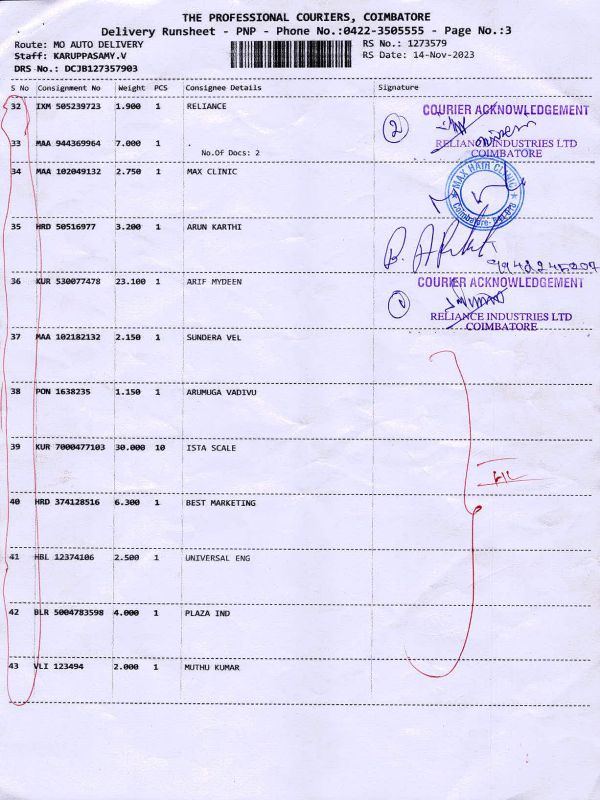 THE PROFESSIONAL COURIERS, COIMBATORE
Delivery Runsheet - PNP - Phone No.:0422-3505555 - Page No.:3
Route: MO AUTO DELIVERY RS No.: 1273579
Staff: KARUPPASAMY.V RS Date: 14-Nov-2023
DRS No.: DCJB127357903
S No Consignment No Weight PCS Consignee Details Signature
32 IXM 505239723 1.900 1 RELIANCE
COURIER ACKNOWLEDGEMENT
2
33 MAA 944369964 7.000 1 .
RELIANCE INDUSTRIES LTD
No.Of Docs: 2
COIMBATORE
34 MAA 102049132 2.750 1 MAX CLINIC
MAX HAIR CLINIC
Coimbatore
35 HRD 50516977 3.200 1 ARUN KARTHI
36 KUR 530077478 23.100 1 ARIF MYDEEN
COURIER ACKNOWLEDGEMENT
RELIANCE INDUSTRIES LTD
COIMBATORE
37 MAA 102182132 2.150 1 SUNDERA VEL
38 PON 1638235 1.150 1 ARUMUGA VADIVU
39 KUR 7000477103 30.000 10 ISTA SCALE
40 HRD 374128516 6.300 1 BEST MARKETING
41 HBL 12374106 2.500 1 UNIVERSAL ENG
42 BLR 5004783598 4.000 1 PLAZA IND
43 VLI 123494 2.000 1 MUTHU KUMAR